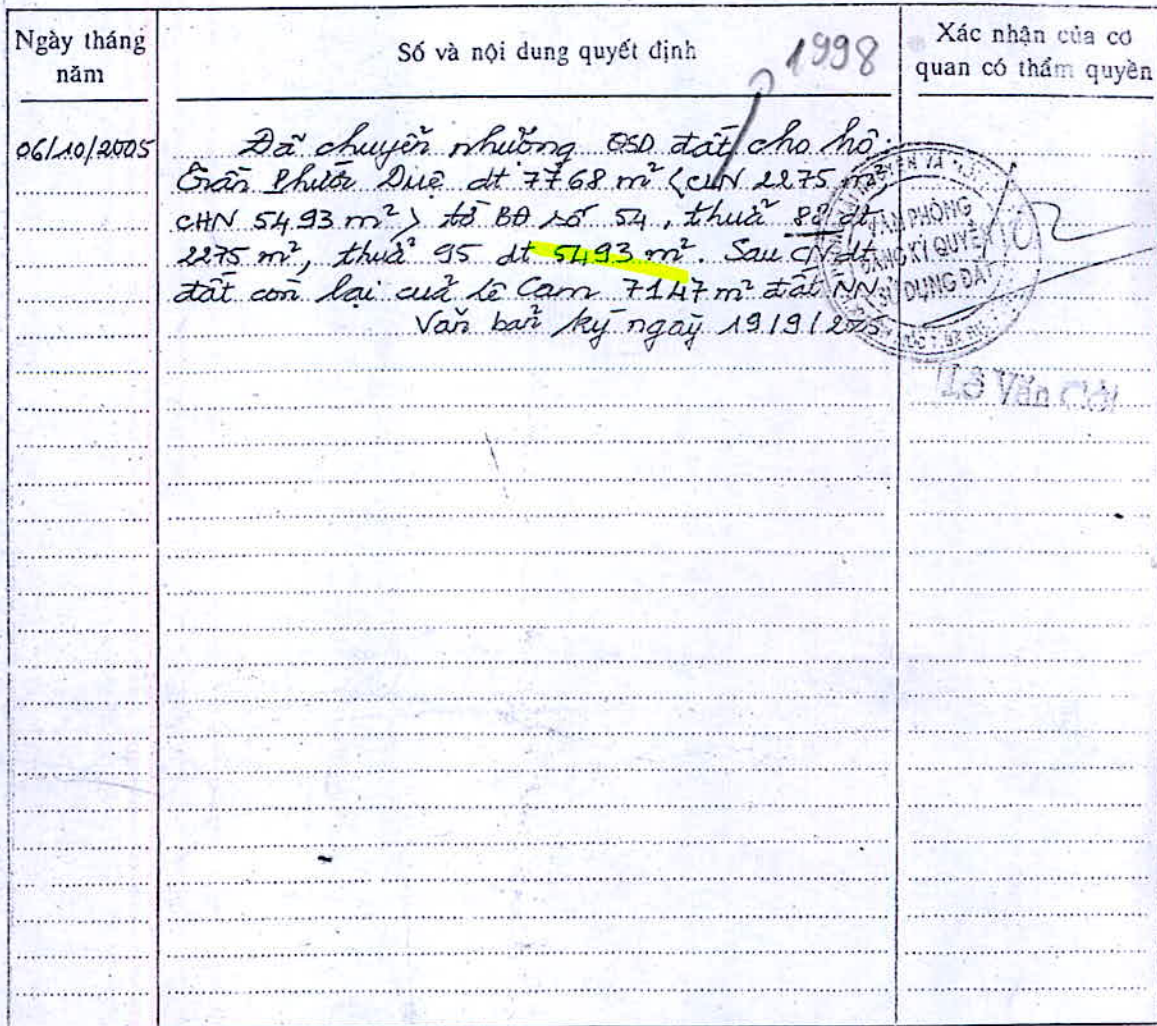 Ngày tháng năm
Số và nội dung quyết định
1998
Xác nhận của cơ quan có thẩm quyền
06/10/2005
Đã chuyển nhượng QSD đất cho hộ:
Trần Phước Duệ dt 7768 m² (CLN 2275 m²
CHN 5493 m²) tờ BĐ số 54, thửa 82 dt
2275 m², thửa 95 dt 5493 m². Sau CN dt
đất còn lại của Lê Cam 7147 m² đất NN
Văn bản ký ngày 19/9/2005
VĂN PHÒNG
ĐĂNG KÝ QUYỀN
SỬ DỤNG ĐẤT
Lê Văn